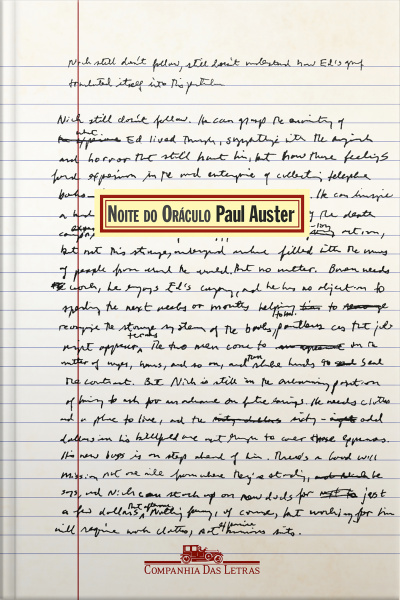 Nick still don't follow, still doesn't understand how Ed's
translated itself into this
Nick still don't follow. He can grasp the enormity of
what Ed lived through, sympathize with the anguish
and horror that still haunt him, but how those feelings
found expression in the mad enterprise of collecting telephone
books . He can imagine
a hund of the death
camp action,
but not this strange, underground archive filled with the names
of people from around the world. But no matter. Bowen needs
work, he enjoys Ed's company, and he has no objection to
spending the next weeks or months helping him to
reorganize the strange system of the books, pointless as that job
might appear. The two men come to terms on the
matter of wages, hours, and so on, and then shake hands to seal
the contract. But Nick is still in the embarrassing position
of having to ask for an advance on future earnings. He needs clothes
and a place to live, and the sixty-odd
dollars in his billfold are not enough to cover those expenses.
His new boss is one step ahead of him. There's a Goodwill
mission not one mile from where they're standing,
says, and Nick can stock up on new duds for just
a few dollars that afternoon. Nothing fancy, of course, but working for him
will require work clothes, not expensive business suits.
NOITE DO ORÁCULO Paul Auster
COMPANHIA DAS LETRAS